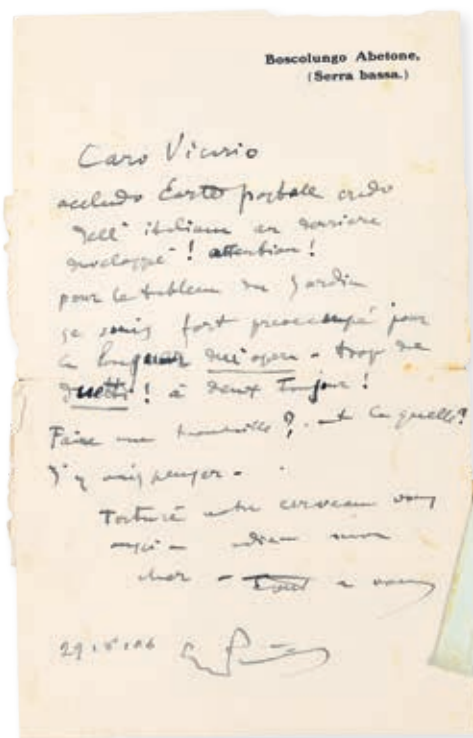 Boscolungo Abetone,
(Serra bassa.)
Caro
accludo Carte postale
dell' italien en derriere
enveloppe! attention!
pour le tableau du Jardin
je suis fort preoccupé pour
la longueur dell'opera - trop de
duetti! à deux Toujour!
Faire une ? et laquelle?
J'y
Torture votre cerveau vous
aussi - adieu mon
cher - Tout a vous